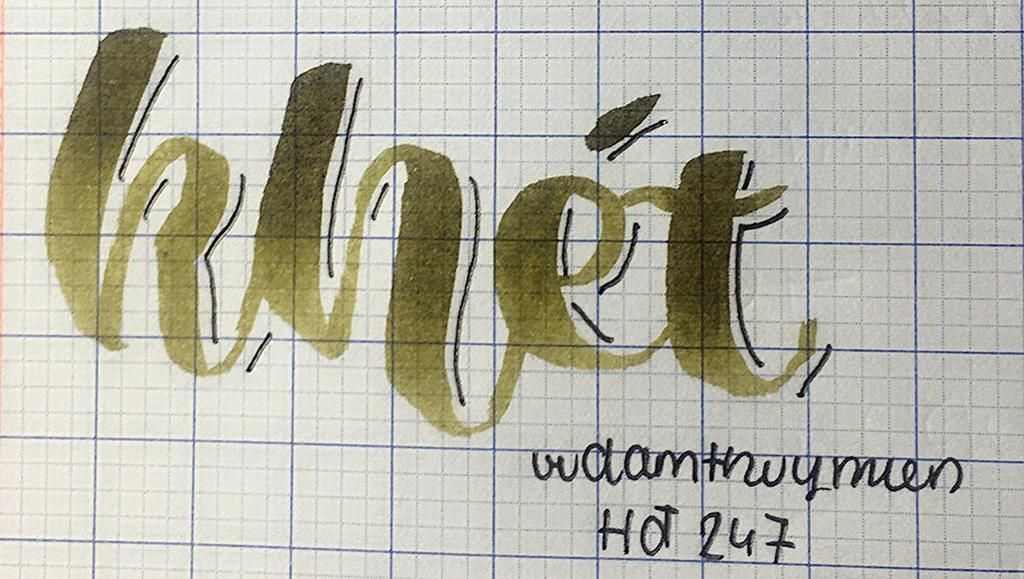 khét
vudamthuymien
HOT 247